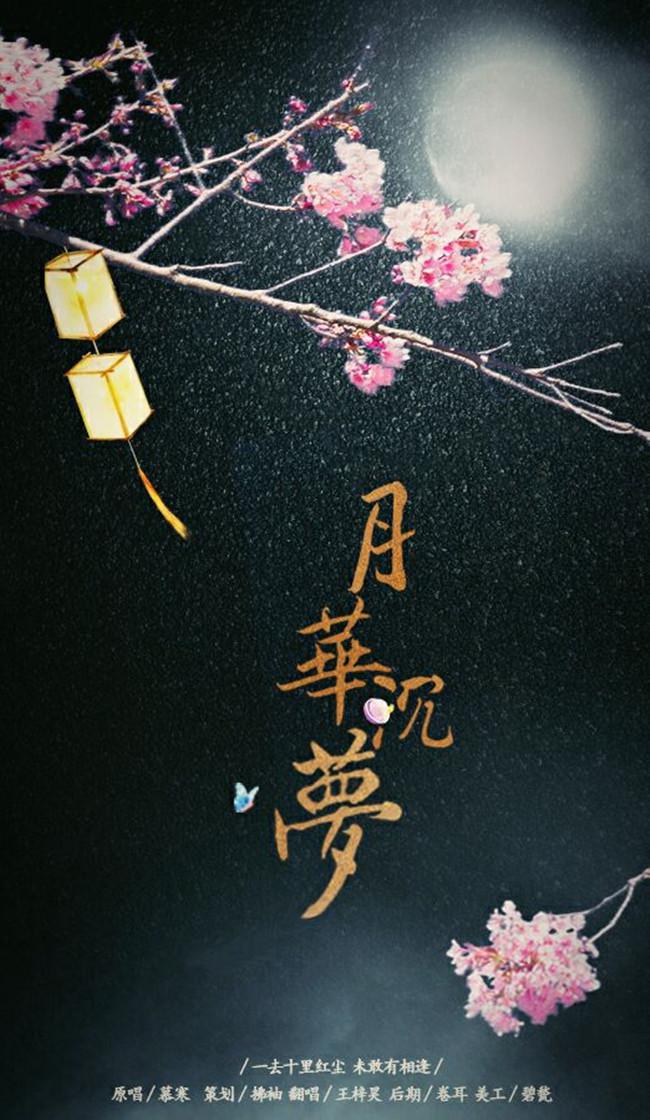 月華沉夢
/一去十里红尘 未敢有相逢/
原唱/慕寒 策划/拂袖 翻唱/王梓旻 后期/卷耳 美工/碧瓮